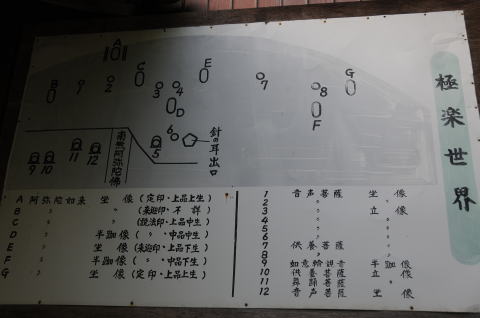 極楽世界
A
B
C
D
E
F
G
1
2
3
4
5
6
7
8
9
10
11
12
南無阿弥陀佛
針の耳出口
A 阿弥陀如来 坐像 (定印・上品上生)
B 〃 〃 (来迎印・不詳)
C 〃 〃 (説法印・上品中生)
D 〃 半跏像 (〃・中品中生)
E 〃 坐像 (来迎印・上品下生)
F 〃 半跏像 (〃・中品下生)
G 〃 坐像 (定印・上品上生)
1 音声菩薩 坐像
2 〃 〃
3 〃 立像
4 〃 〃
5 〃
6 〃
7 供養菩薩
8 〃
9 如意輪観音 半跏像
10 供養菩薩 立像
11 舞踊菩薩 〃
12 音声菩薩 坐像